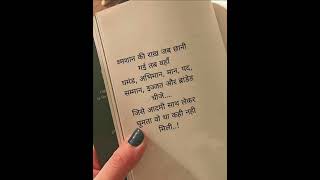 श्मशान की राख जब छानी
गई तब वहाँ
घमंड, अभिमान, मान, पद,
सम्मान, इज्जत और ब्रांडेड
चीजे....
जिसे आदमी साथ लेकर
घूमता वो था कही नही
मिली..!